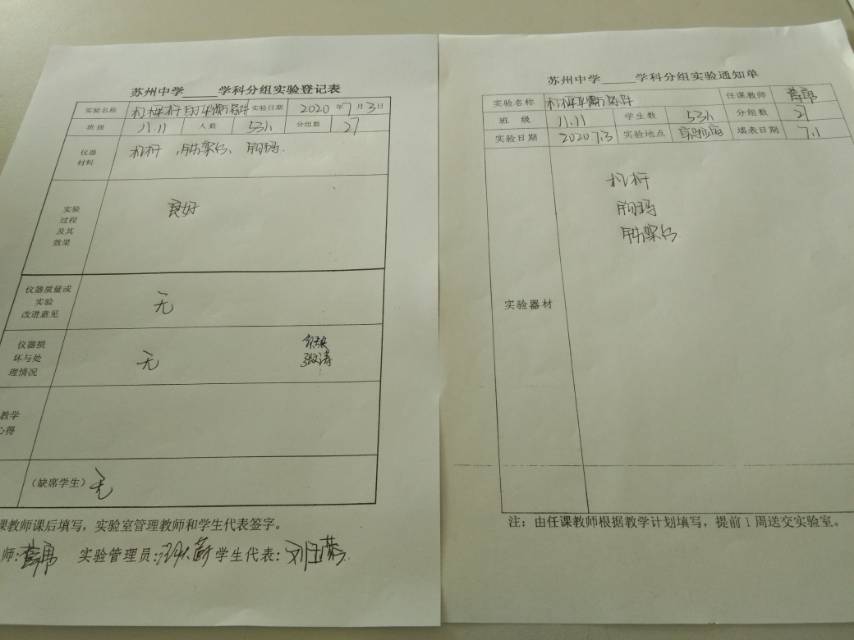 苏州中学 学科分组实验登记表
实验名称 杠杆平衡条件 实验日期 2020年7月3日
班级 八.11 人数 53人 分组数 27
仪器材料 杠杆、铁架台、钩码.
实验过程及其效果 良好
仪器质量或实验改进意见 无
仪器损坏与处理情况 无
教学心得
(缺席学生) 无
课教师课后填写,实验室管理教师和学生代表签字。
师: 实验管理员: 学生代表:
苏州中学 学科分组实验通知单
实验名称 杠杆平衡条件 任课教师
班级 八.11 学生数 53人 分组数 27
实验日期 2020 7.3 实验地点 实验室 填表日期 7.1
实验器材
杠杆
钩码
铁架台
注:由任课教师根据教学计划填写,提前1周送交实验室。